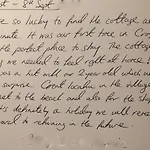 st - 8th Sept
re so lucky to find the cottage a
nute. It was our first time in Cro
the perfect place to stay. The cottag
we needed to feel right at home!
was a hit with our 2 year old which w
surprise. Great location in the village
to the beach and also for the sh
It's definitely a holiday we will reme
ward to returning in the future.